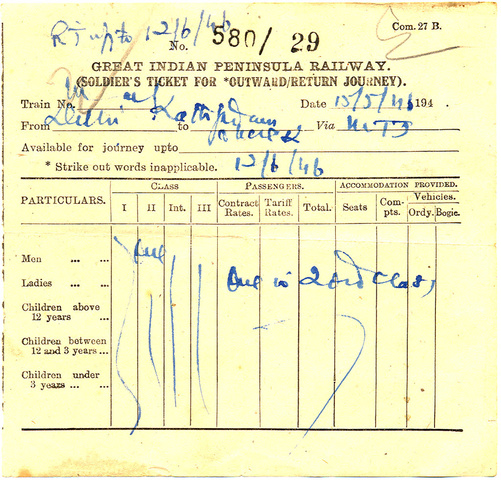 RJ upto 12/6/46
Com. 27 B.
No. 580/ 29
GREAT INDIAN PENINSULA RAILWAY.
(SOLDIER'S TICKET FOR *OUTWARD/RETURN JOURNEY).
Train No. Date 15/5/46 194 .
From Delhi to Kathgodam Via MTJ
& back
Available for journey upto
* Strike out words inapplicable. 12/6/46
PARTICULARS. CLASS PASSENGERS. ACCOMMODATION PROVIDED.
I II Int. III Contract Rates. Tariff Rates. Total. Seats Compts. Vehicles. Ordy. Bogie.
Men ... ... One
Ladies ... ... One in 2nd Class
Children above
12 years ...
Children between
12 and 3 years...
Children under
3 years ...